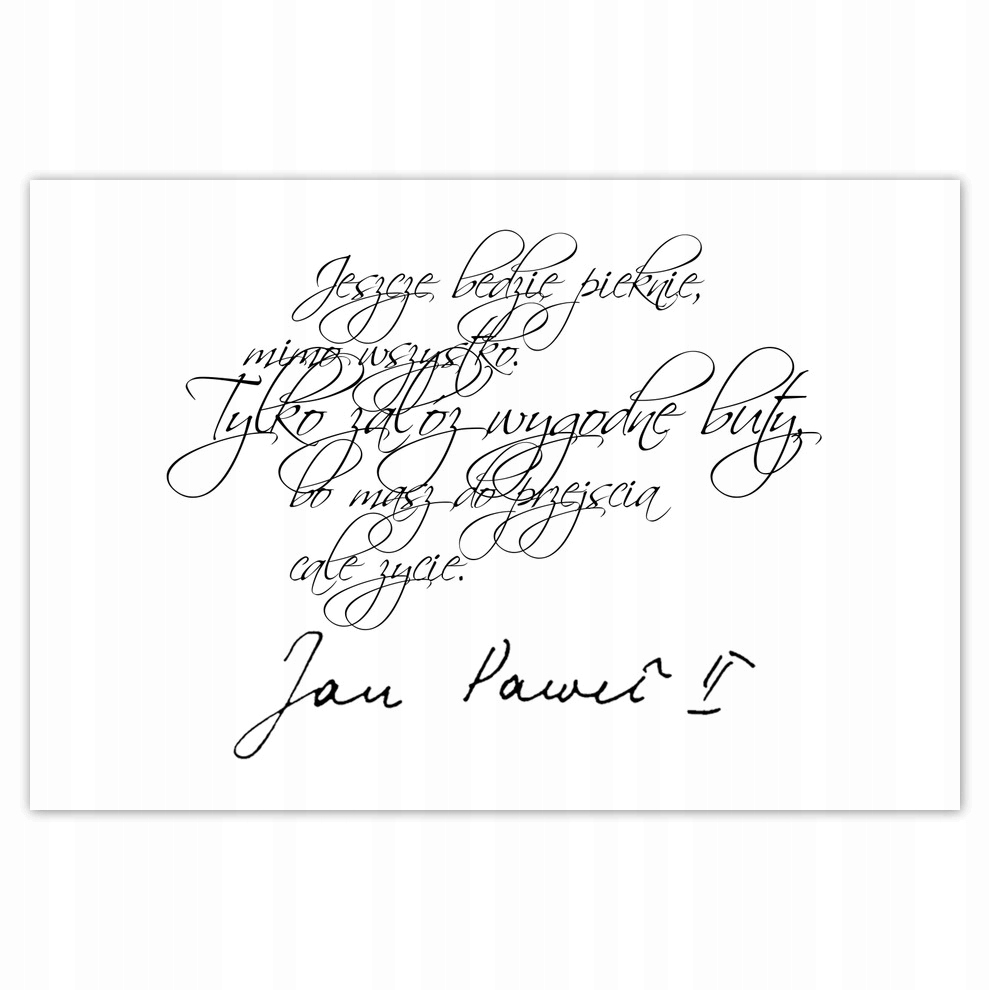 Jeszcze bedzie pieknie,
mimo wszystko.
Tylko zalóz wygodne buty,
bo masz do przejscia
cale zycie.
Jan Paweł II